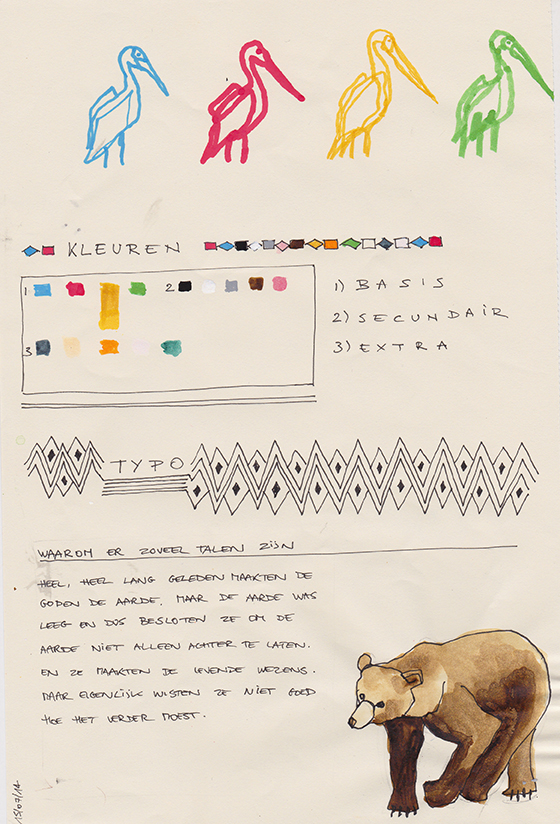 KLEUREN
1 2
3
1) BASIS
2) SECUNDAIR
3) EXTRA
TYPO
WAAROM ER ZOVEEL TALEN ZIJN
HEEL, HEEL LANG GELEDEN MAAKTEN DE
GODEN DE AARDE. MAAR DE AARDE WAS
LEEG EN DUS BESLOTEN ZE OM DE
AARDE NIET ALLEEN ACHTER TE LATEN.
EN ZE MAAKTEN DE LEVENDE WEZENS.
MAAR EIGENLIJK WISTEN ZE NIET GOED
HOE HET VERDER MOEST.
15/07/14